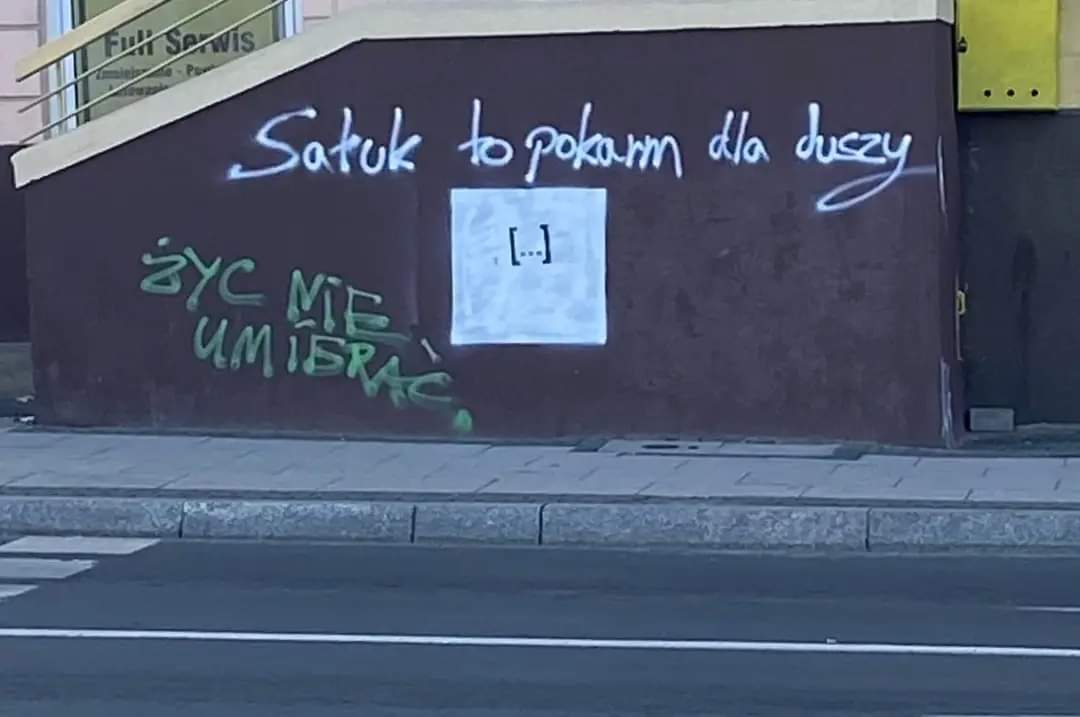 Full Serwis
Satuk to pokarm dla duszy
[...]
ŻYC NIE
UMIERAĆ